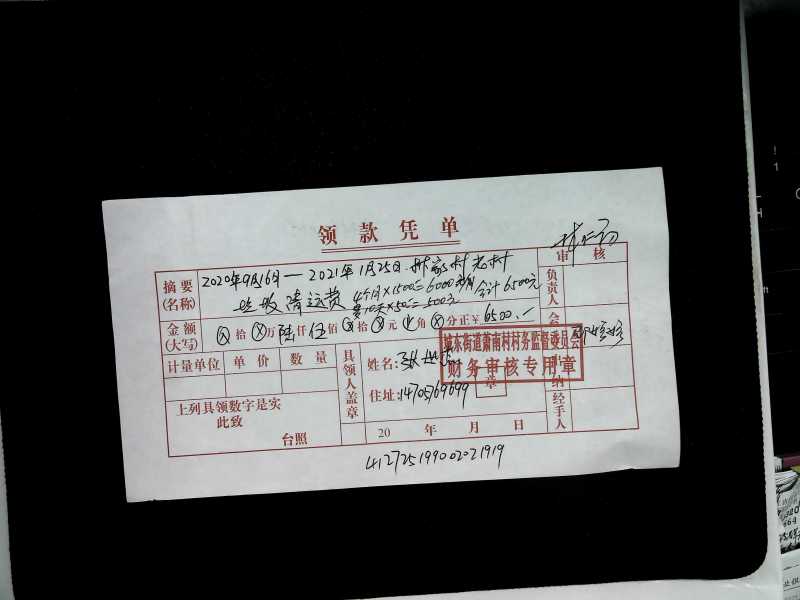 领款凭单
审核
摘要(名称)
2020年9月16日—2021年1月25日.林家村老村
垃圾清运费 4个月×1500=6000元 合计6500元
10天×50=500元
负责人
金额(大写)
ⓧ拾ⓧ万陆仟伍佰ⓧ拾ⓧ元ⓧ角ⓧ分正¥6500.—
会
计量单位 单价 数量
具领人盖章
姓名:
城东街道萧南村村务监督委员会
财务审核专用章
章
纳
住址:14705769699
经手人
上列具领数字是实
此致
台照
20 年 月 日
412725199002021919